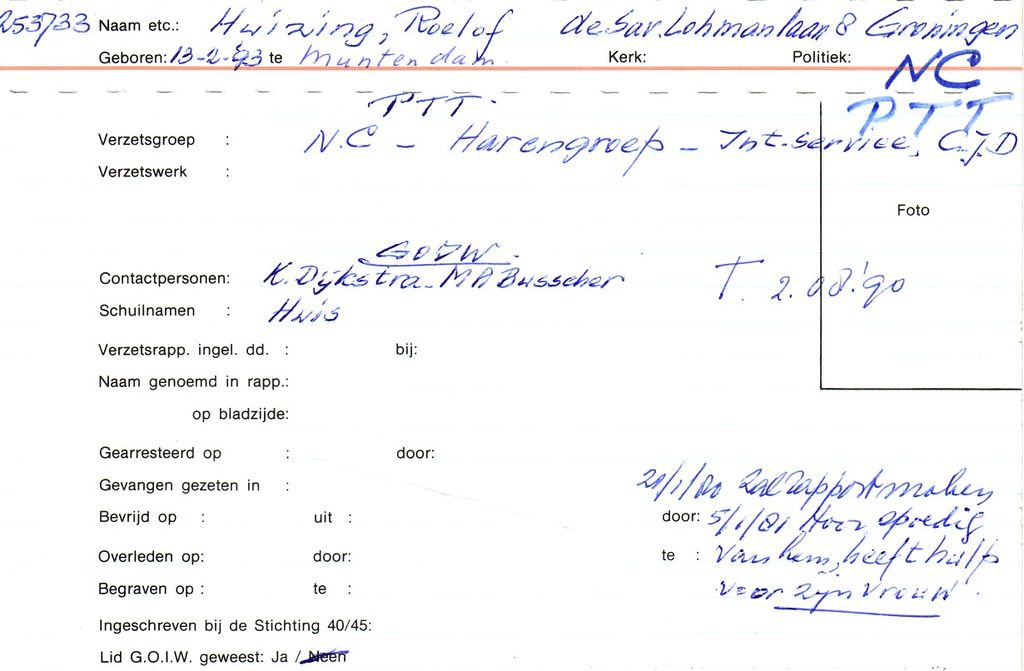 253733 Naam etc.: Huizing, Roelof de Sav. Lohmanlaan 8 Groningen
Geboren: 13-2-'93 te Muntendam. Kerk: Politiek:
NC
PTT. PTT
Verzetsgroep : N.C - Harengroep - Int-service, C.J.D
Verzetswerk :
Foto
GOIW.
Contactpersonen: K. Dijkstra M A Busscher T. 2.08.'90
Schuilnamen : Huis
Verzetsrapp. ingel. dd. : bij:
Naam genoemd in rapp.:
op bladzijde:
Gearresteerd op : door:
Gevangen gezeten in : Zal rapport maken
Bevrijd op : uit : door: 5/1/81 Hoor spoedig
Overleden op: door: te : van hem, heeft hulp
Begraven op : te : voor zijn vrouw.
Ingeschreven bij de Stichting 40/45:
Lid G.O.I.W. geweest: Ja / Neen